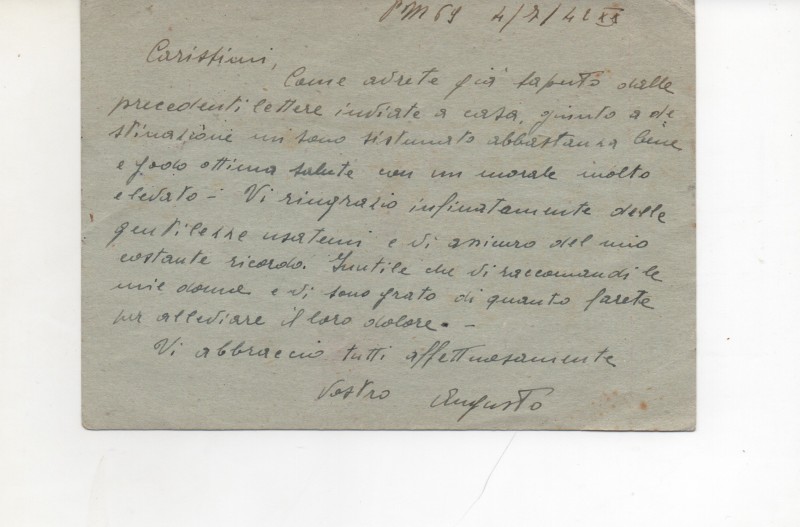 PM 69 4/7/42 XX
Carissimi,
Come avrete già saputo dalle
precedenti lettere inviate a casa, giunto a de
stinazione mi sono sistemato abbastanza bene
e godo ottima salute con un morale molto
elevato - Vi ringrazio infinatamente delle
gentilezze usatemi e vi assicuro del mio
costante ricordo. Inutile che vi raccomandi le
mie donne e vi sono grato di quanto farete
per alleviare il loro dolore. -
Vi abbraccio tutti affettuosamente
Vostro Augusto